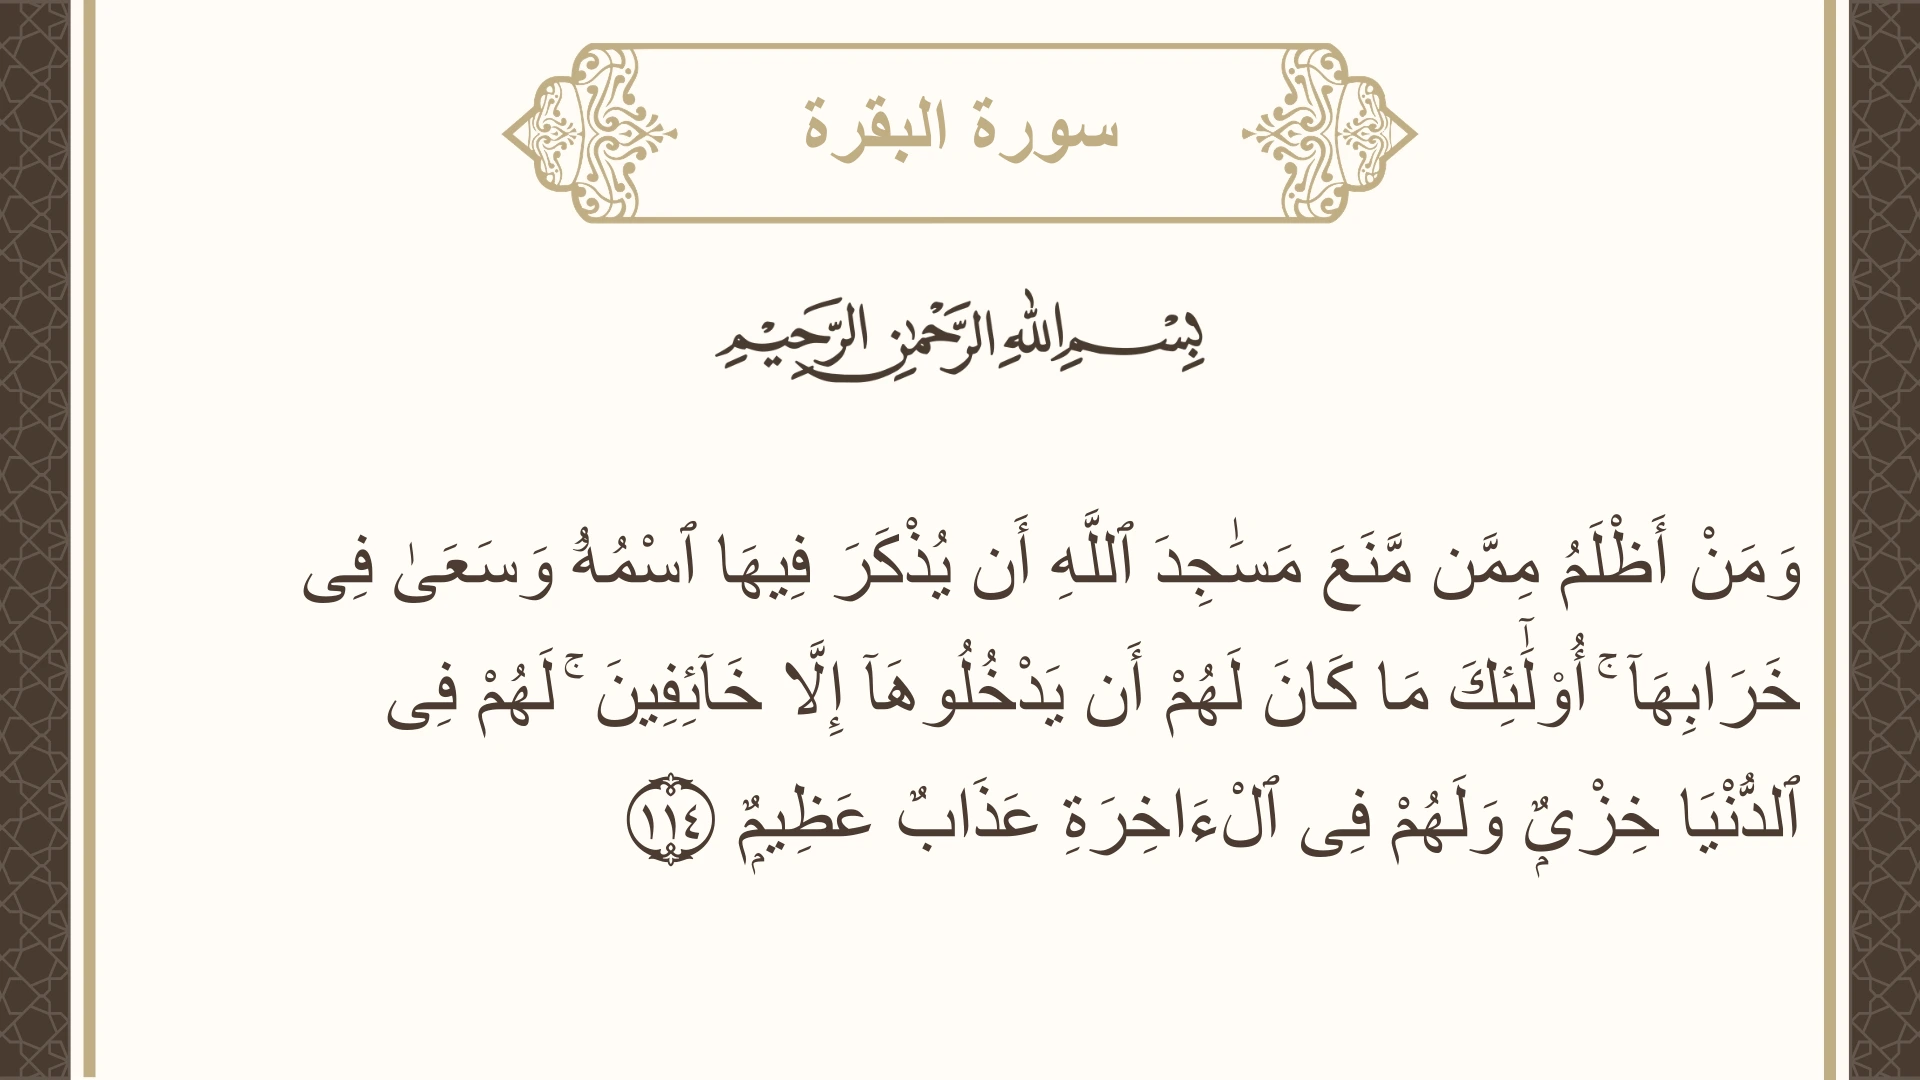 سورة البقرة
بِسْمِ اللهِ الرَّحْمٰنِ الرَّحِيْمِ
وَمَنْ أَظْلَمُ مِمَّن مَّنَعَ مَسَـٰجِدَ ٱللَّهِ أَن يُذْكَرَ فِيهَا ٱسْمُهُۥ وَسَعَىٰ فِى
خَرَابِهَآ ۚ أُو۟لَـٰٓئِكَ مَا كَانَ لَهُمْ أَن يَدْخُلُوهَآ إِلَّا خَآئِفِينَ ۚ لَهُمْ فِى
ٱلدُّنْيَا خِزْىٌۭ وَلَهُمْ فِى ٱلْءَاخِرَةِ عَذَابٌ عَظِيمٌۭ ١١٤